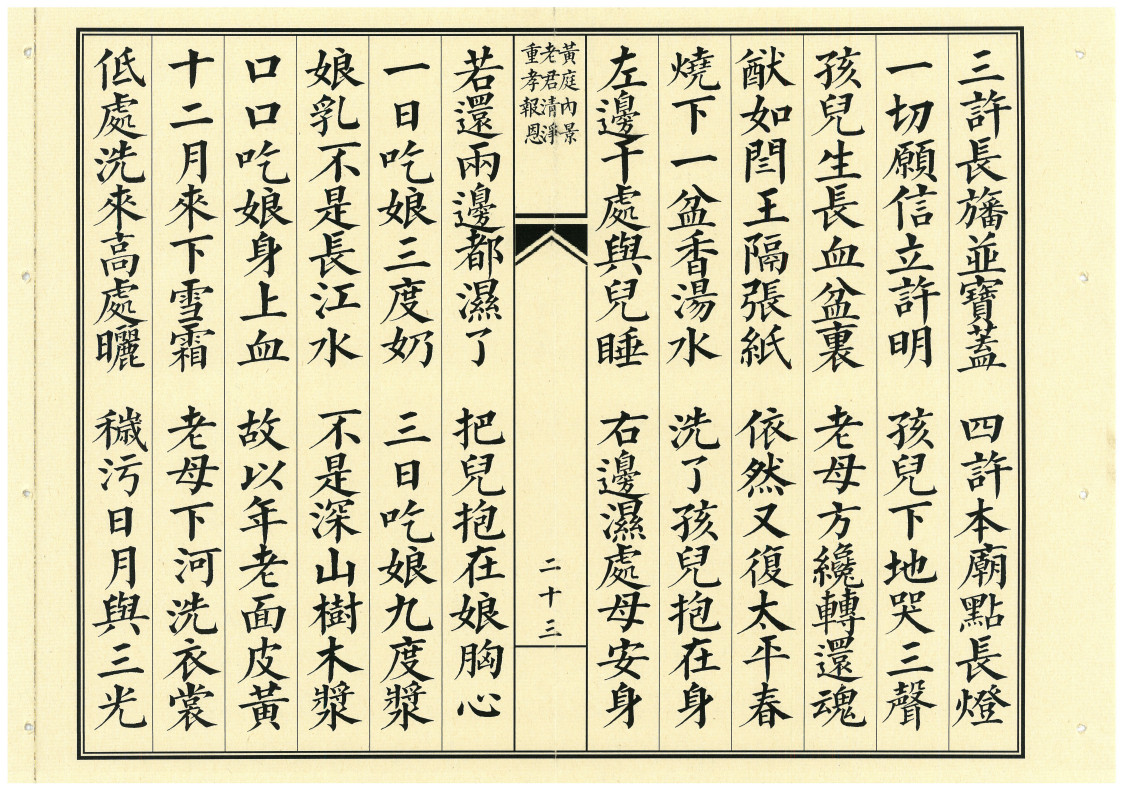 三許長旛並寶蓋 四許本廟點長燈
一切願信立許明 孩兒下地哭三聲
孩兒生長血盆裏 老母方纔轉還魂
猷如閆王隔張紙 依然又復太平春
燒下一盆香湯水 洗了孩兒抱在身
左邊干處與兒睡 右邊濕處母安身
黃庭內景
老君清淨
重孝報恩
二十三
若還兩邊都濕了 把兒抱在娘胸心
一日吃娘三度奶 三日吃娘九度漿
娘乳不是長江水 不是深山樹木漿
口口吃娘身上血 故以年老面皮黃
十二月來下雪霜 老母下河洗衣裳
低處洗來高處曬 穢污日月與三光